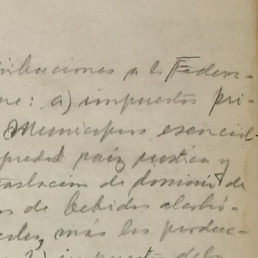 tribuciones a la Federa-
me: a) impuestos pri-
Municipios esencial-
propiedad raíz rustica y
traslacion de dominio de
as de bebidas alcohó-
, más los produc-